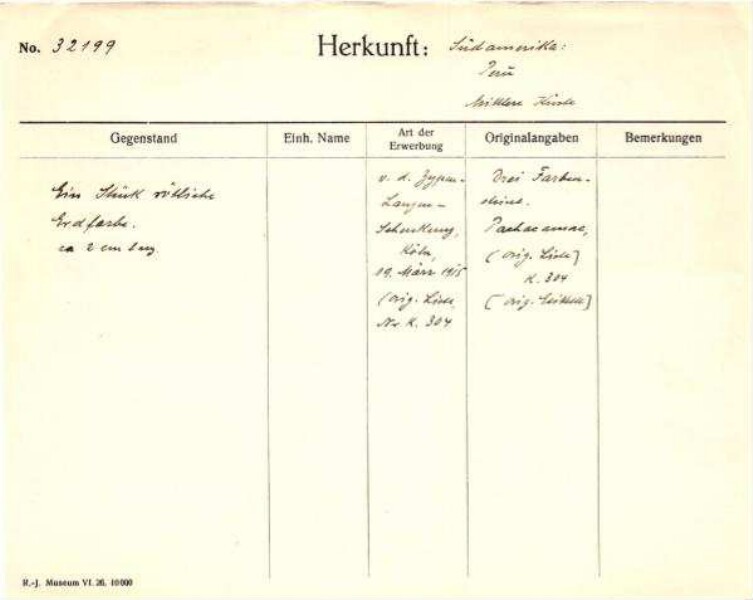 No. 32199
Herkunft: Südamerika:
Perú
Mittlere Küste
Gegenstand
Einh. Name
Art der Erwerbung
Originalangaben
Bemerkungen
Ein Stück rötliche
Erdfarbe.
ca 2 cm lang.
v. d. Zypen-
Langen-
Schenkung,
Köln,
19. März 1915
(orig. Liste,
Nr. K. 304
Drei Farben-
steine.
Pachacamac,
(orig. Liste]
K. 304
[orig.
R.-J. Museum VI. 26. 10000